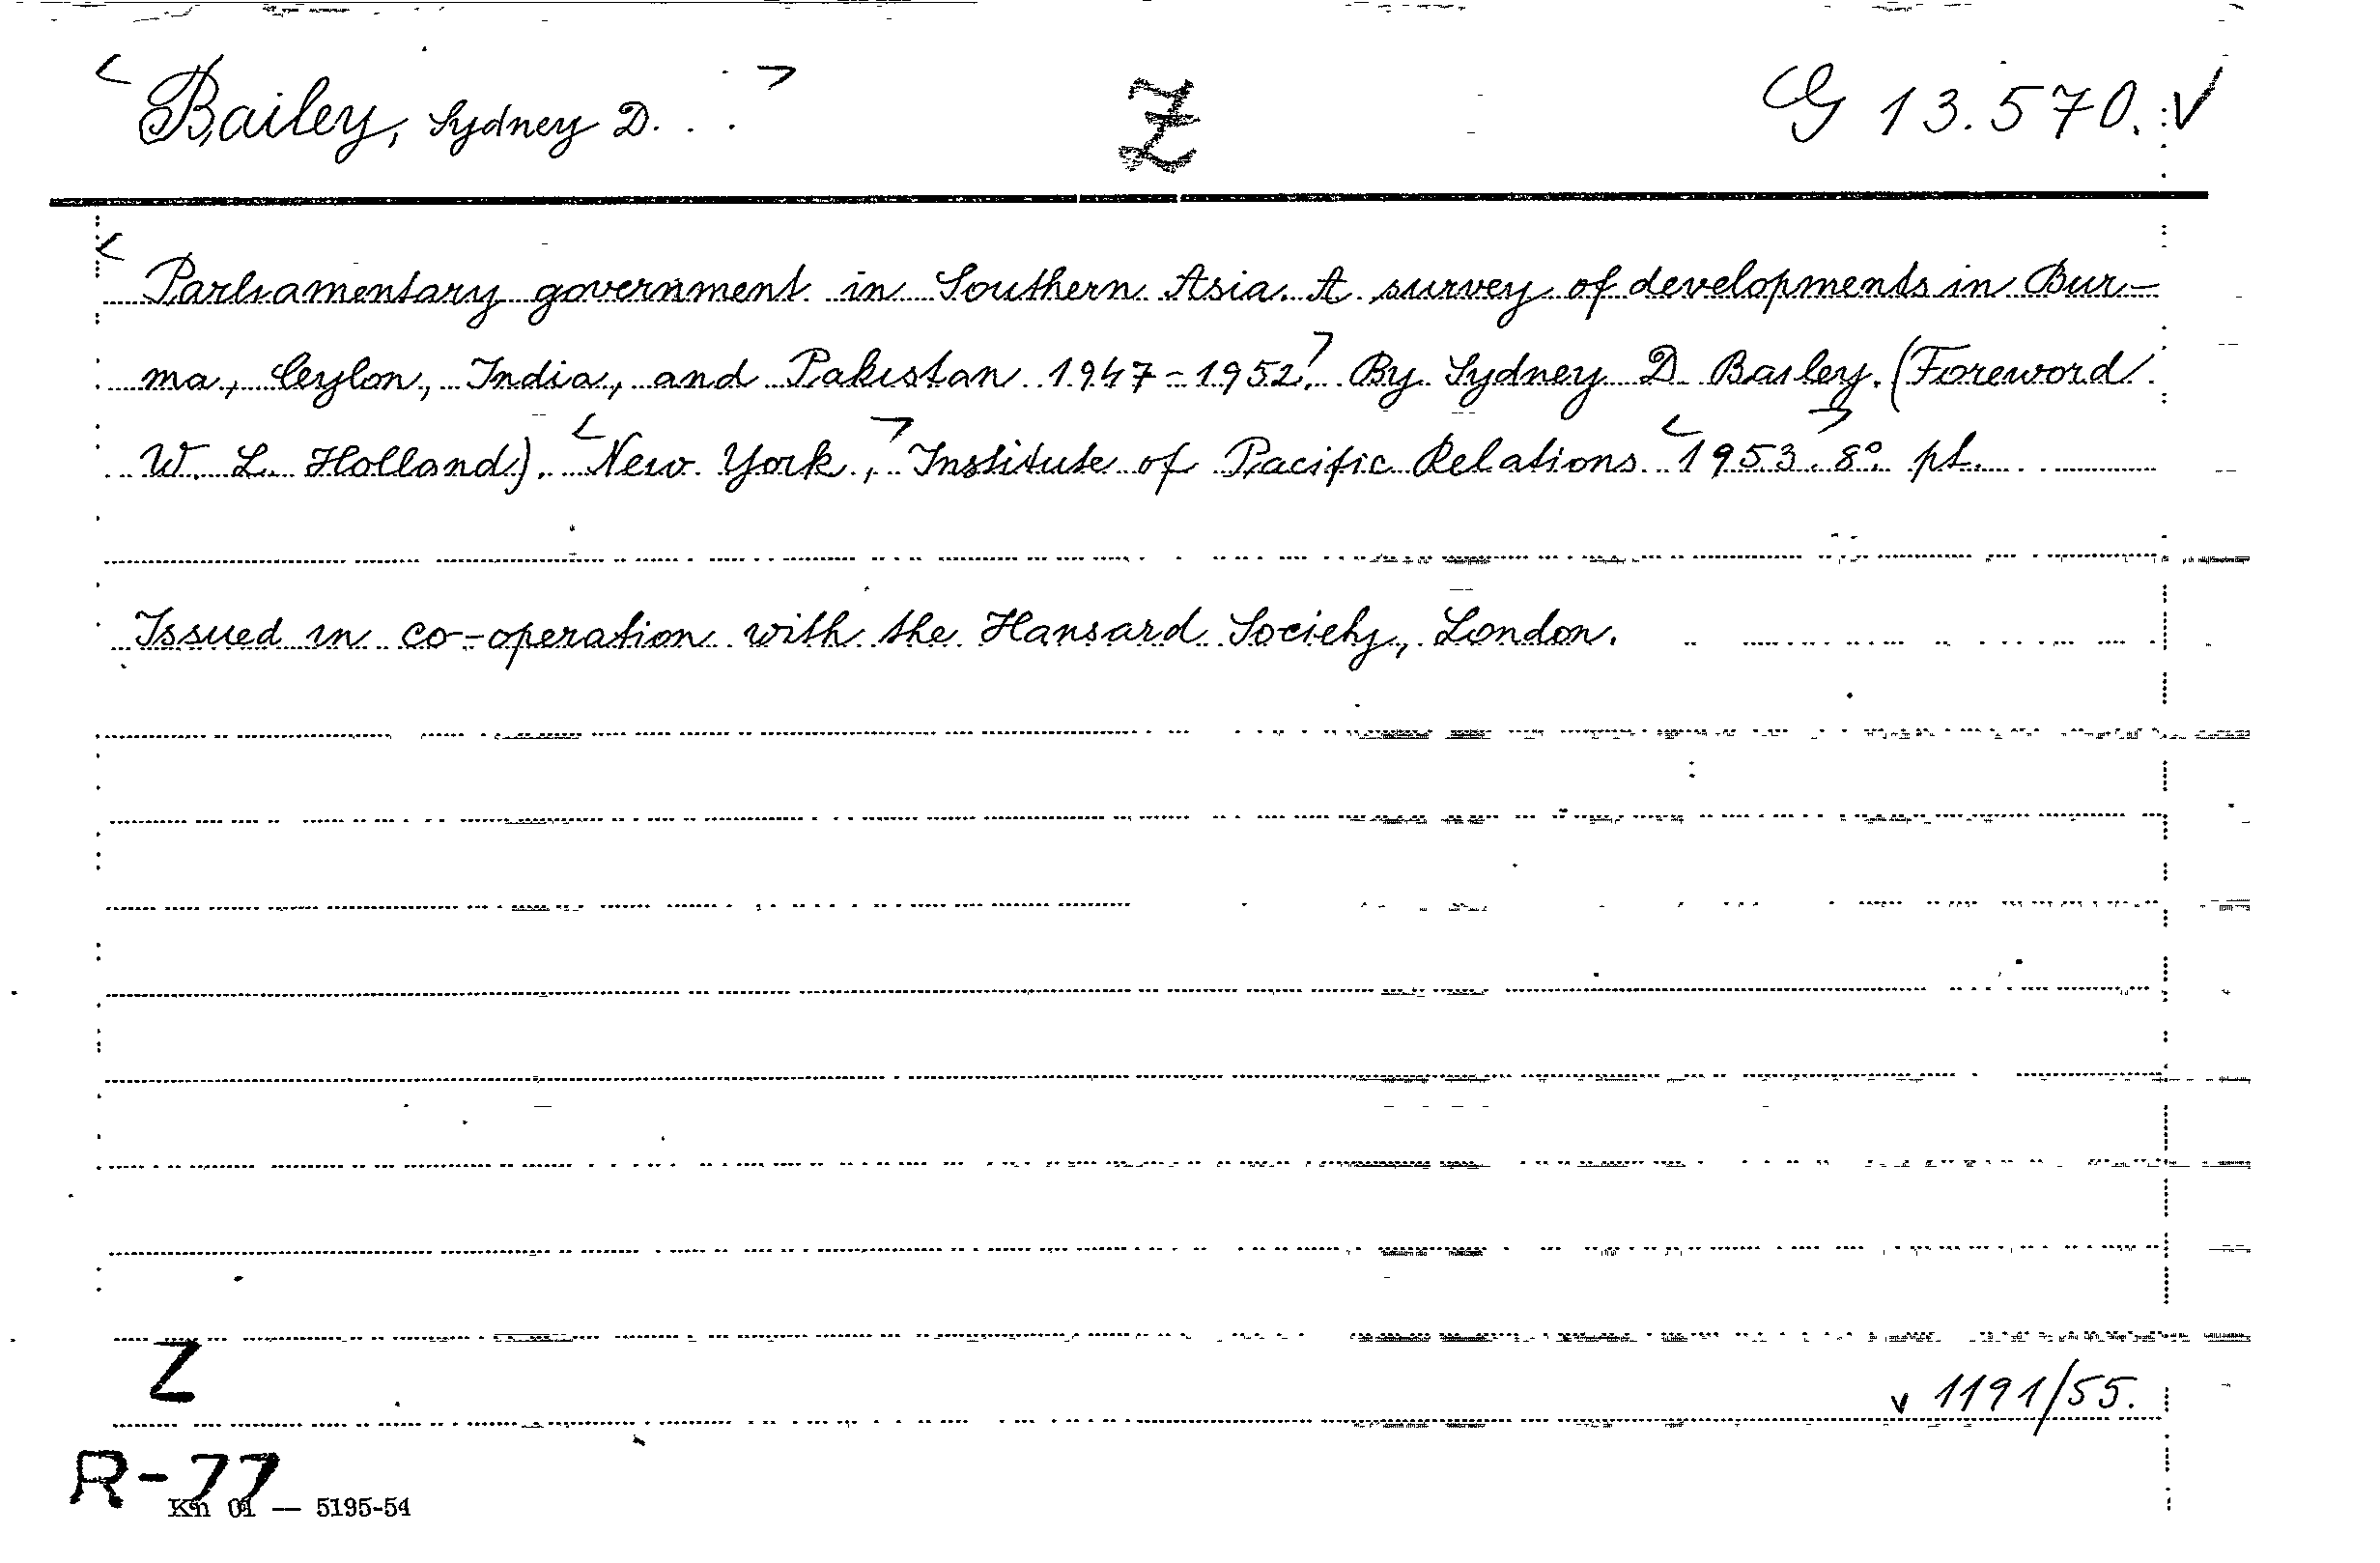 < Bailey, Sydney D. . . > Z G 13.570. V
< Parliamentary government in Southern Asia. A survey of developments in Bur-
ma, Ceylon, India, and Pakistan 1947-1952. > By Sydney D. Bailey. (Foreword
W. L. Holland). < New York, > Institute of Pacific Relations < 1953. > 8° pt.
Issued in co-operation with the Hansard Society, London.
Z
v 1191/55.
R-77
Kn 01 — 5195-54